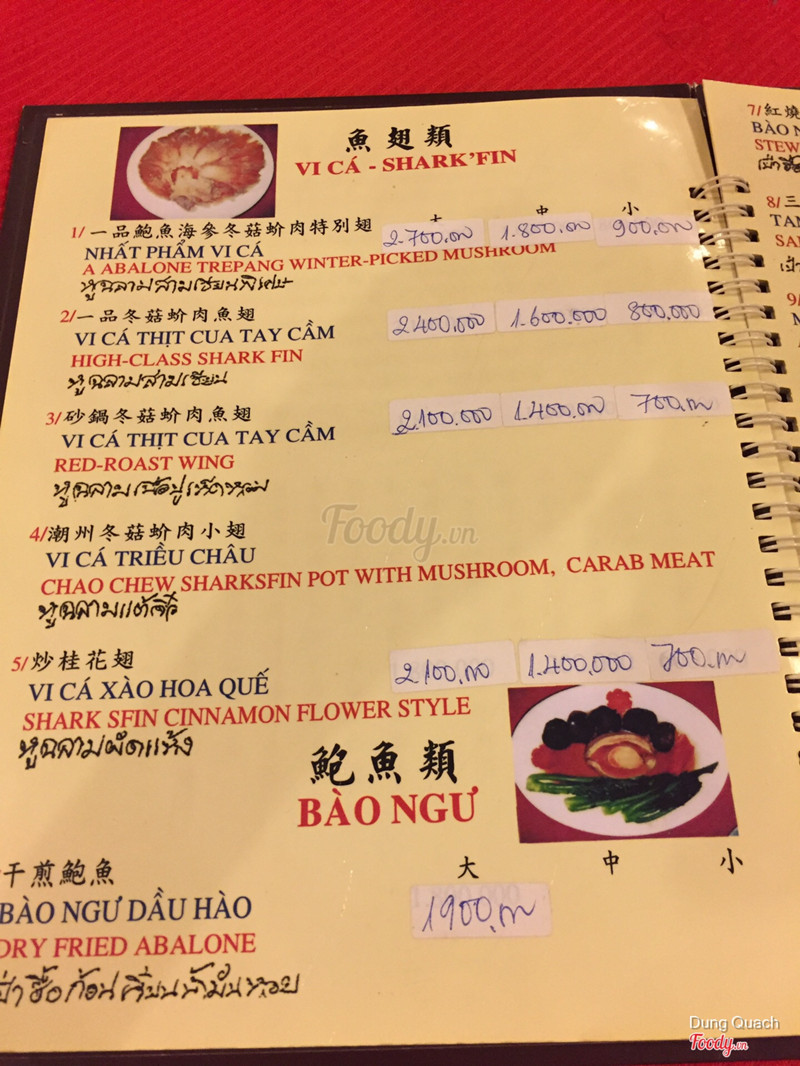 魚翅類
VI CÁ - SHARK'FIN
大 中 小
1/ 一品鮑魚海參冬菇蚧肉特別翅 2.700.000 1.800.000 900.000
NHẤT PHẨM VI CÁ
A ABALONE TREPANG WINTER-PICKED MUSHROOM
หูฉลามสามเซียนพิเศษ
2/ 一品冬菇蚧肉魚翅 2.400.000 1.600.000 800.000
VI CÁ THỊT CUA TAY CẦM
HIGH-CLASS SHARK FIN
หูฉลามสามเซียน
3/ 砂鍋冬菇蚧肉魚翅 2.100.000 1.400.000 700.000
VI CÁ THỊT CUA TAY CẦM
RED-ROAST WING
หูฉลามเนื้อปูเห็ดหอม
4/ 潮州冬菇蚧肉小翅
VI CÁ TRIỀU CHÂU
CHAO CHEW SHARKSFIN POT WITH MUSHROOM, CARAB MEAT
หูฉลามแต้จิ๋ว
5/ 炒桂花翅 2.100.000 1.400.000 700.000
VI CÁ XÀO HOA QUẾ
SHARK SFIN CINNAMON FLOWER STYLE
หูฉลามผัดแห้ง
鮑魚類
BÀO NGƯ
大 中 小
干煎鮑魚
BÀO NGƯ DẦU HÀO 1900.000
DRY FRIED ABALONE
7/ 紅燒
BÀO N
STEW
8/ 三
TAM
SA
9/
Foody.vn
Dung Quach
Foody.vn